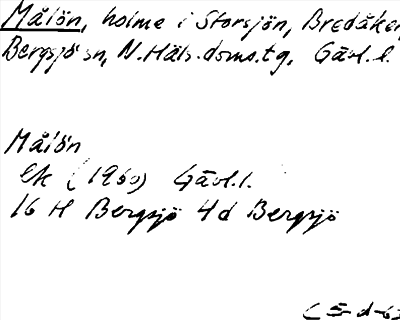 Målön, holme i Storsjön, Bredåker,
Bergsjö sn, N.Häls.doms.tg, Gävl.l.
Målön
Ek (1960) Gävl.l.
16 H Bergsjö 4d Bergsjö